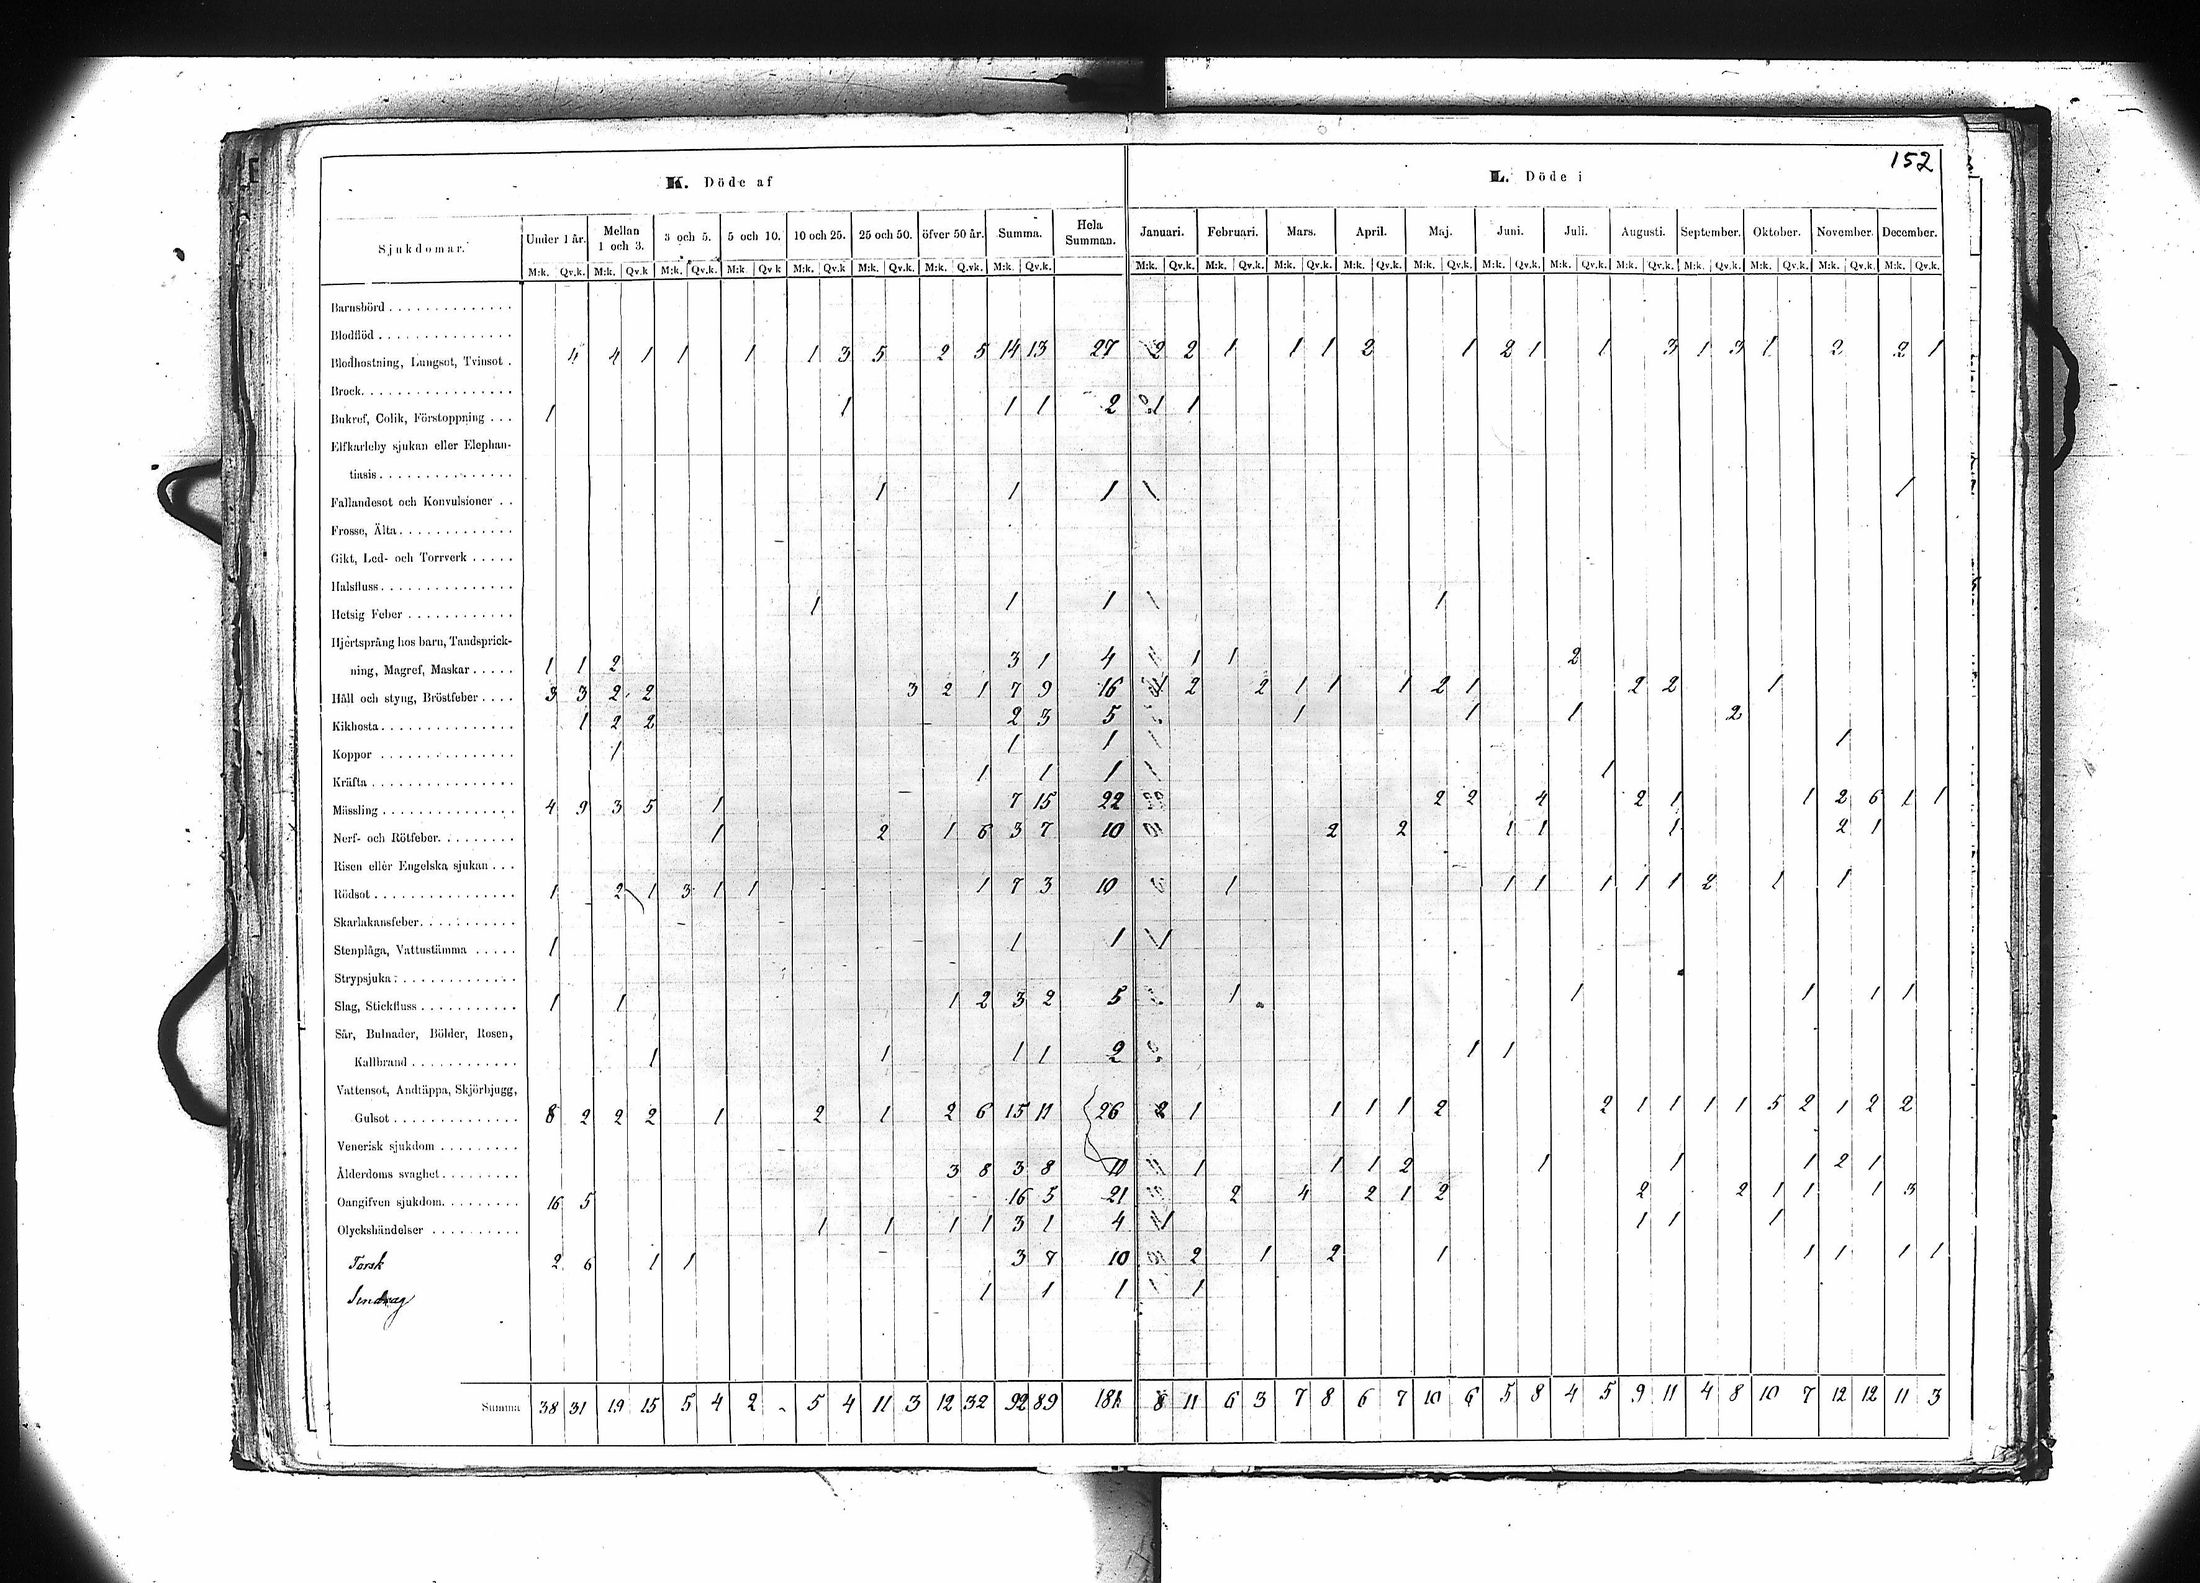 152
K. Döde af L. Döde i
Sjukdomar. Under 1 år. Mellan 1 och 3. 3 och 5. 5 och 10. 10 och 25. 25 och 50. öfver 50 år. Summa. Hela Summan. Januari. Februari. Mars. April. Maj. Juni. Juli. Augusti. September. Oktober. November. December.
M:k. Qv.k. M:k. Qv.k M:k. Qv.k. M:k Qv k M:k. Qv.k M:k. Qv.k. M:k. Q.vk. M:k. Qv.k. M:k. Qv.k. M:k. Qv.k. M:k. Qv.k. M:k. Qv.k. M:k. Qv.k. M:k. Qv.k. M:k. Qv.k. M:k. Qv.k. M:k. Qv.k. M:k. Qv.k. M:k. Qv.k. M:k. Qv.k.
Barnsbörd
Blodflöd
Blodhostning, Lungsot, Tvinsot . 4 4 1 1 1 1 3 5 2 5 14 13 27 2 2 1 1 1 2 1 2 1 1 3 1 3 1 2 2 1
Brock
Bukref, Colik, Förstoppning . . . 1 1 1 1 2 1 1
Elfkarleby sjukan eller Elephan-
tiasis
Fallandesot och Konvulsioner . . 1 1 1 1
Frosse, Älta
Gikt, Led- och Torrverk
Halsfluss
Hetsig Feber 1 1 1 1
Hjertsprång hos barn, Tandsprick-
ning, Magref, Maskar 1 1 2 3 1 4 1 1 2
Håll och styng, Bröstfeber 3 3 2 2 3 2 1 7 9 16 1 2 2 1 1 1 2 1 2 2 1
Kikhosta 1 2 2 2 3 5 1 1 1 2
Koppor 1 1 1 1
Kräfta 1 1 1 1
Mässling 4 9 3 5 1 7 15 22 2 2 4 2 1 1 2 6 1 1
Nerf- och Rötfeber 1 2 1 6 3 7 10 2 2 1 1 1 2 1
Risen eller Engelska sjukan . . .
Rödsot 1 2 1 3 1 1 1 7 3 10 1 1 1 1 1 1 2 1 1
Skarlakansfeber
Stenplåga, Vattustämma 1 1 1 1
Strypsjuka
Slag, Stickfluss 1 1 1 2 3 2 5 1 1 1 1 1
Sår, Bulnader, Bölder, Rosen,
Kallbrand 1 1 1 1 2 1 1
Vattensot, Andtäppa, Skjörbjugg,
Gulsot 8 2 2 2 1 2 1 2 6 15 11 26 2 1 1 1 1 2 2 1 1 1 1 5 2 1 2 2
Venerisk sjukdom
Ålderdoms svaghet 3 8 3 8 1 1 1 2 1 1 1 2 1
Oangifven sjukdom 16 5 16 5 21 2 4 2 1 2 2 2 1 1 1 3
Olyckshändelser 1 1 1 1 3 1 4 1 1 1 1
Torsk 2 6 1 1 3 7 10 2 1 2 1 1 1 1 1
Sendrag 1 1 1 1
Summa 38 31 19 15 5 4 2 - 5 4 11 3 12 32 92 89 181 8 11 6 3 7 8 6 7 10 6 5 8 4 5 9 11 4 8 10 7 12 12 11 3